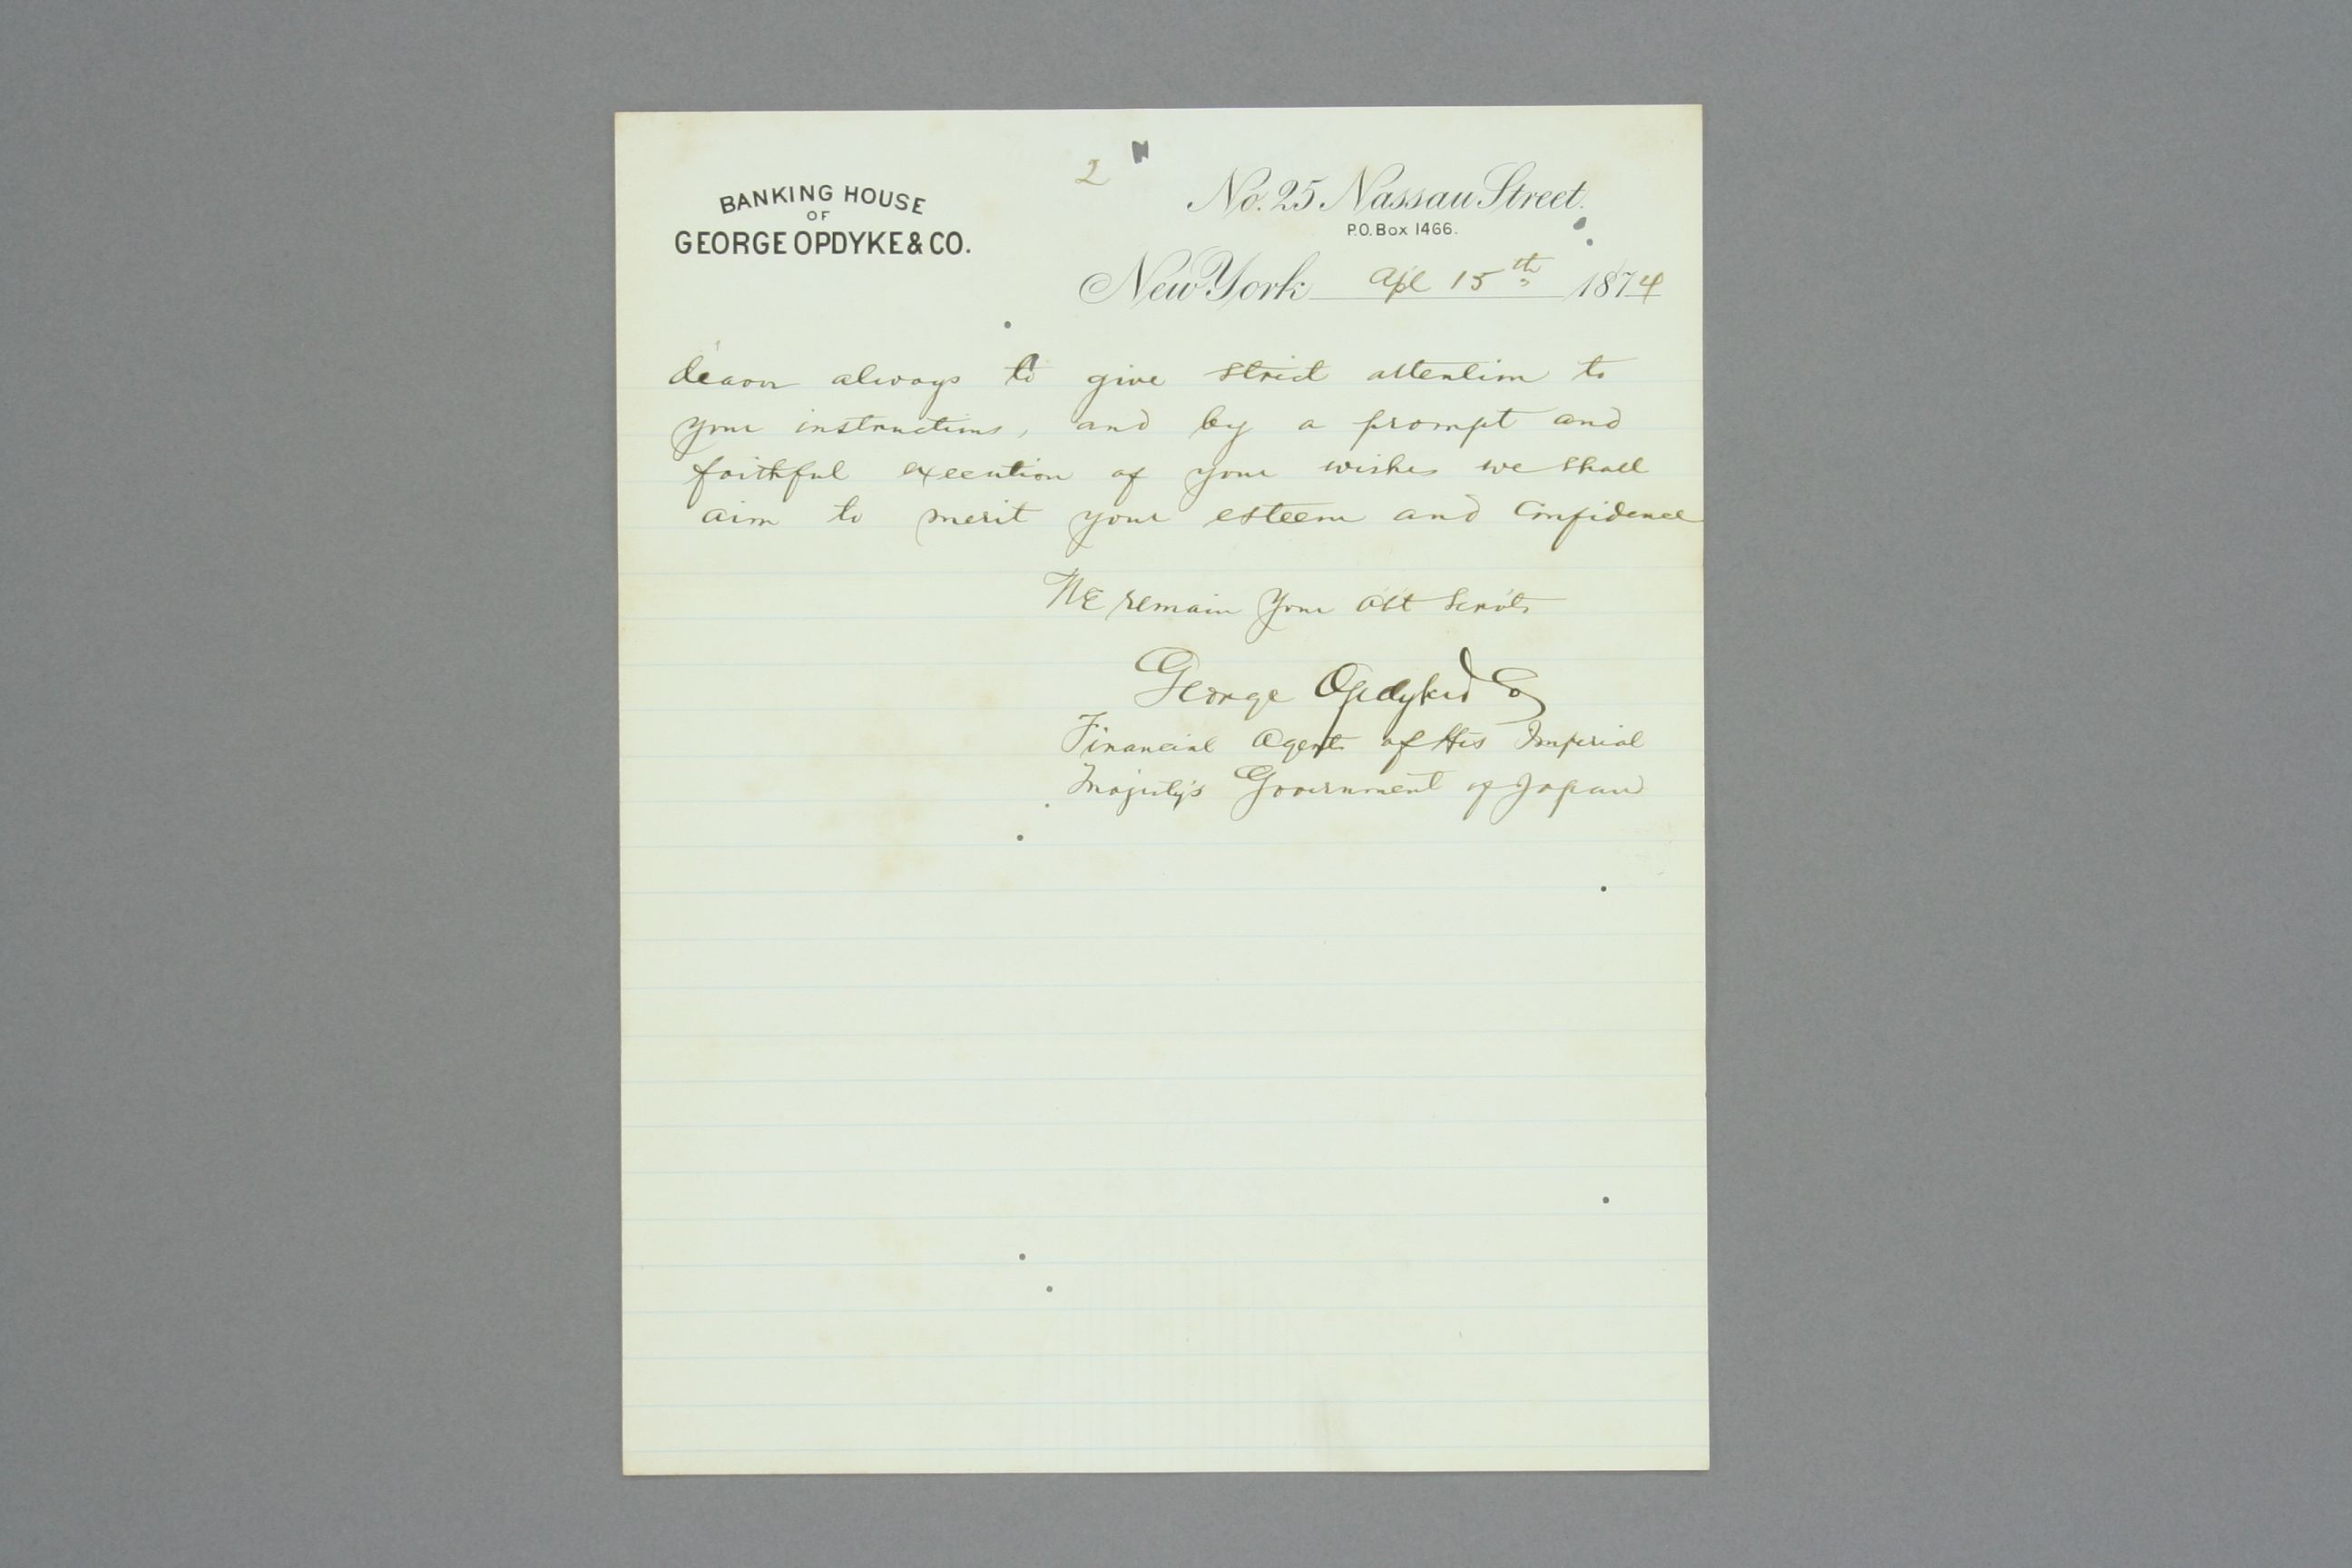 2
BANKING HOUSE
OF
GEORGE OPDYKE & CO.
No. 25 Nassau Street.
P.O. Box 1466.
New York Apl 15th 1874
deavor always to give strict attention to
your instructions, and by a prompt and
faithful execution of your wishes we shall
aim to merit your esteem and Confidence
We remain Your Obt Servts
George Opdyke & Co
Financial Agents of His Imperial
Majesty's Government of Japan